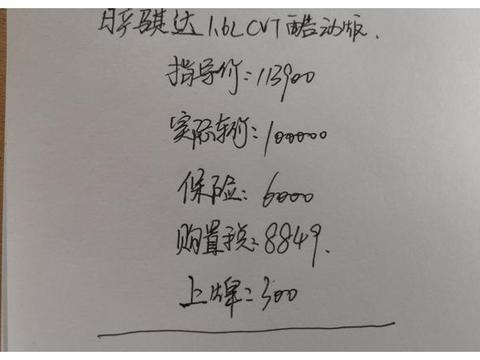 日产骐达1.6L CVT酷动版.
指导价:113900
实际车价:100000
保险:6000
购置税:8849.
上牌:300